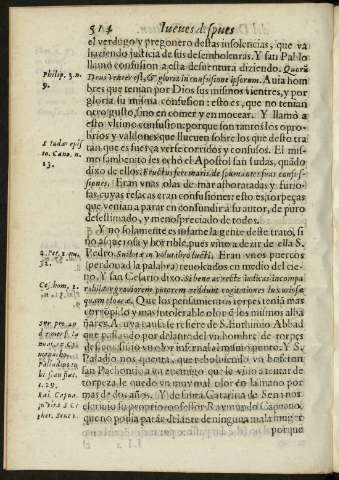 514 Iueues despues
el verdugo y pregonero destas insolencias, que va
haziendo justicia de sus desemboluras. Y san Pablo
llamó confusion a esta desuentura diziendo. Quorũ
Deus venter est, & gloria in confusione ipsorum. Auia hom
bres que tenian por Dios sus mismos vientres, y por
gloria su misma confusion: esto es, que no tenian
otro gusto, sino en comer y en mocear. Y llamó a
esto vltimo confusion: porque son tantos los opro-
brios y valdones que llueuen sobre los que desto tra
tan, que es fuerça verse corridos y confusos. El mis-
mo sambenito les echó el Apostol san Iudas, quãdo
dixo de ellos: fluctus feri maris despumantes suas confu-
siones. Eran vnas olas de mar alborotadas y furio-
sas, cuyas resacas eran confusiones: esto es, torpeças
que venian a parar en confundir a su autor, de puro
desestimado, y menospreciado de todos.
Y no solamente es infame la gente deste trato, si
no asquerosa y horrible, pues vino a dezir de ella S.
Pedro. Sus lota in volutabro luti. Eran vnos puercos
(perdonad la palabra) rebolcados en medio del cie-
no. Y san Cesario dixo.
Que los pensamientos torpes tenia mas
corrõpido y mas intolerable olor q̃ los mismos alba
ñares. A cuya causa se refiere de S. Euthimio Abbad
que passando por delante de vn hombre de torpes
desseos, sintio vn olor infernal a mismo punto. Y S.
Paladio nos cuenta, que
san Pachomio
torpeza le quedó vn muy mal olor en la mano por
mas de dos años. Y de santa Catarina de Sena nos
escriuio su proprio confessor Raymundo Capuano,
que no podia parar delante de ninguna mala muger
porque
Philip. 3. n.
9.
S Iudæ epis
to. Cano. n.
13.
2. Pet. 2. nu.
32.
Ces. hom. 2.